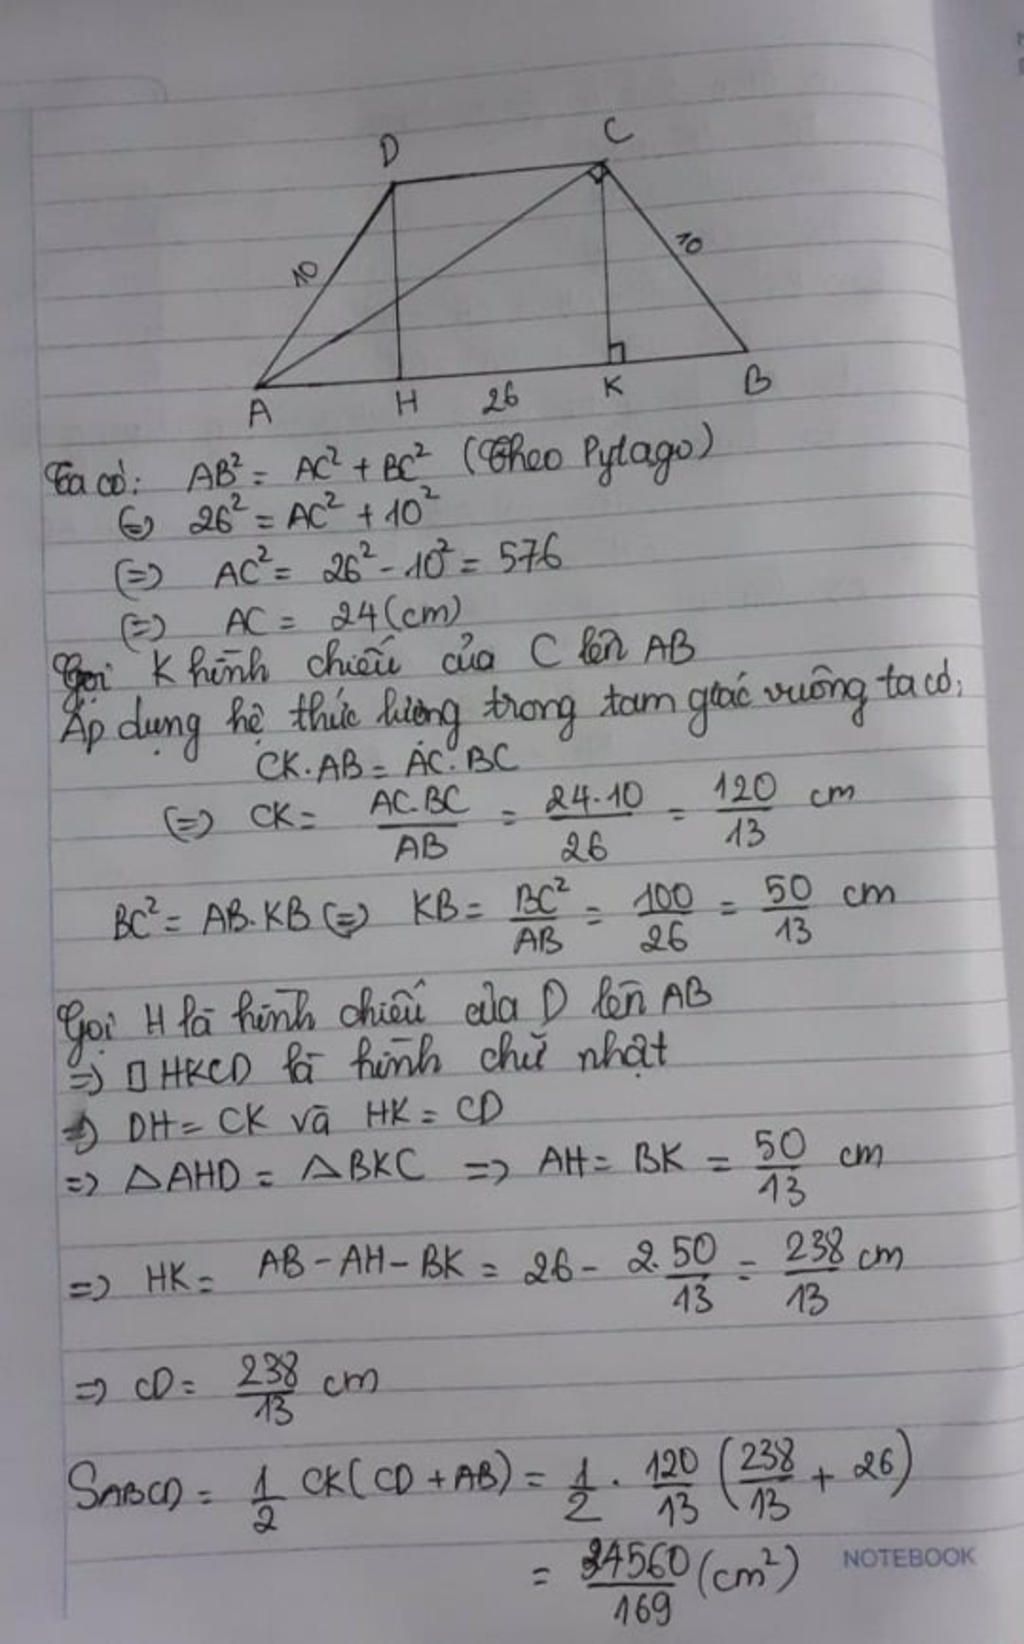 D
C
10
10
A
H
26
K
B
Ta có: AB² = AC² + BC² (Theo Pytago)
(=) 26² = AC² + 10²
(=) AC² = 26² - 10² = 576
(=) AC = 24 (cm)
Gọi K hình chiếu của C lên AB
Áp dụng hệ thức lượng trong tam giác vuông ta có:
CK.AB = AC.BC
(=) CK = AC.BC/AB = 24.10/26 = 120/13 cm
BC² = AB.KB (=) KB = BC²/AB = 100/26 = 50/13 cm
Gọi H là hình chiếu của D lên AB
=) □HKCD là hình chữ nhật
=) DH = CK và HK = CD
=) △AHD = △BKC =) AH = BK = 50/13 cm
=) HK = AB - AH - BK = 26 - 2.50/13 = 238/13 cm
=) CD = 238/13 cm
SABCD = 1/2 CK(CD + AB) = 1/2 . 120/13 (238/13 + 26)
= 34560/169 (cm²)
NOTEBOOK